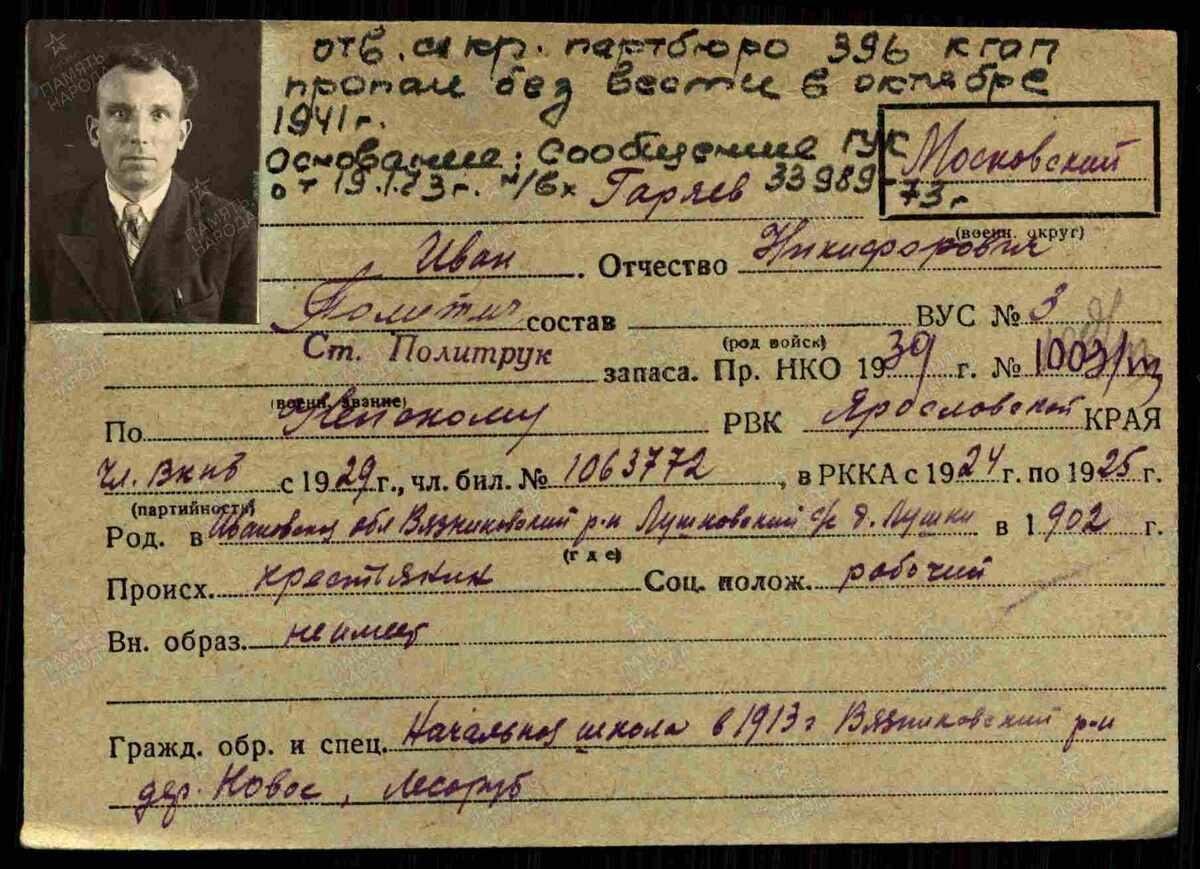 отв. секр. партбюро 396 кгап
пропал без вести в октябре
1941 г.
Основание: Сообщение ГУК
от 19.1.73 г. 33989-
73 г
Московский
(военн. округ)
Гаряев
Иван. Отчество Никифорович
Политич состав ВУС № 3
Ст. Политрук запаса. Пр. НКО 1939 г. №
(род войск)
(военн. звание)
По РВК Ярославской КРАЯ
Чл. ВКПб с 1929 г., чл. бил. № 1063772, в РККА с 1924 г. по 1925 г.
(партийность)
Род. в Ивановской обл Вязниковский р-н Лушковский с/с д. Лушки в 1902 г.
(где)
Происх. крестьянин Соц. полож. рабочий
Вн. образ. не имеет
Гражд. обр. и спец. Начальная школа в 1913 г Вязниковский р-н
дер. Новое, Лесоруб
ПАМЯТЬ НАРОДА